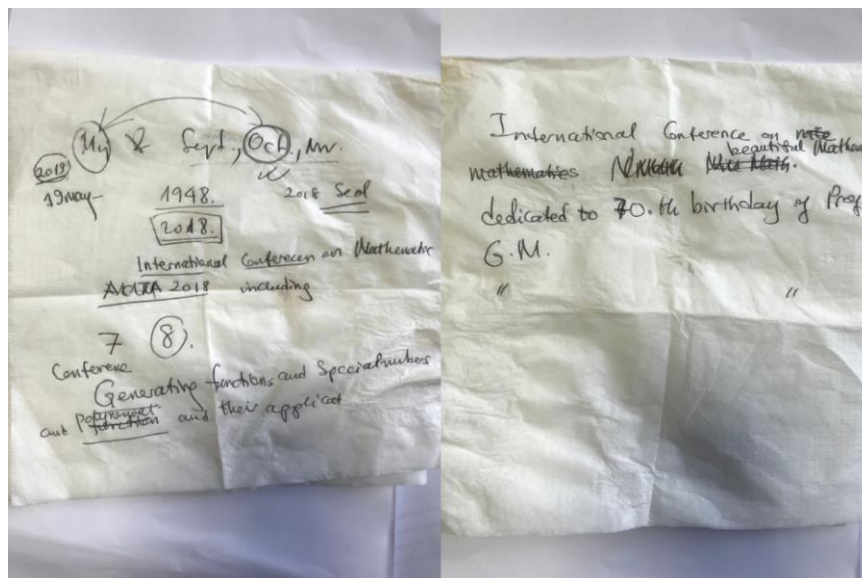 My & Sept., Oct., Nov.
2019
19 may-
1948. 2018 Seal
2018.
International Conferecen on Mathematic
2018 including
7 8.
Conference
Generating functions and Special numbers
and function and their applicat
International Conference on note
beautiful Mathem
mathematics
dedicated to 70.th birthday of Prof
G.M.
" "